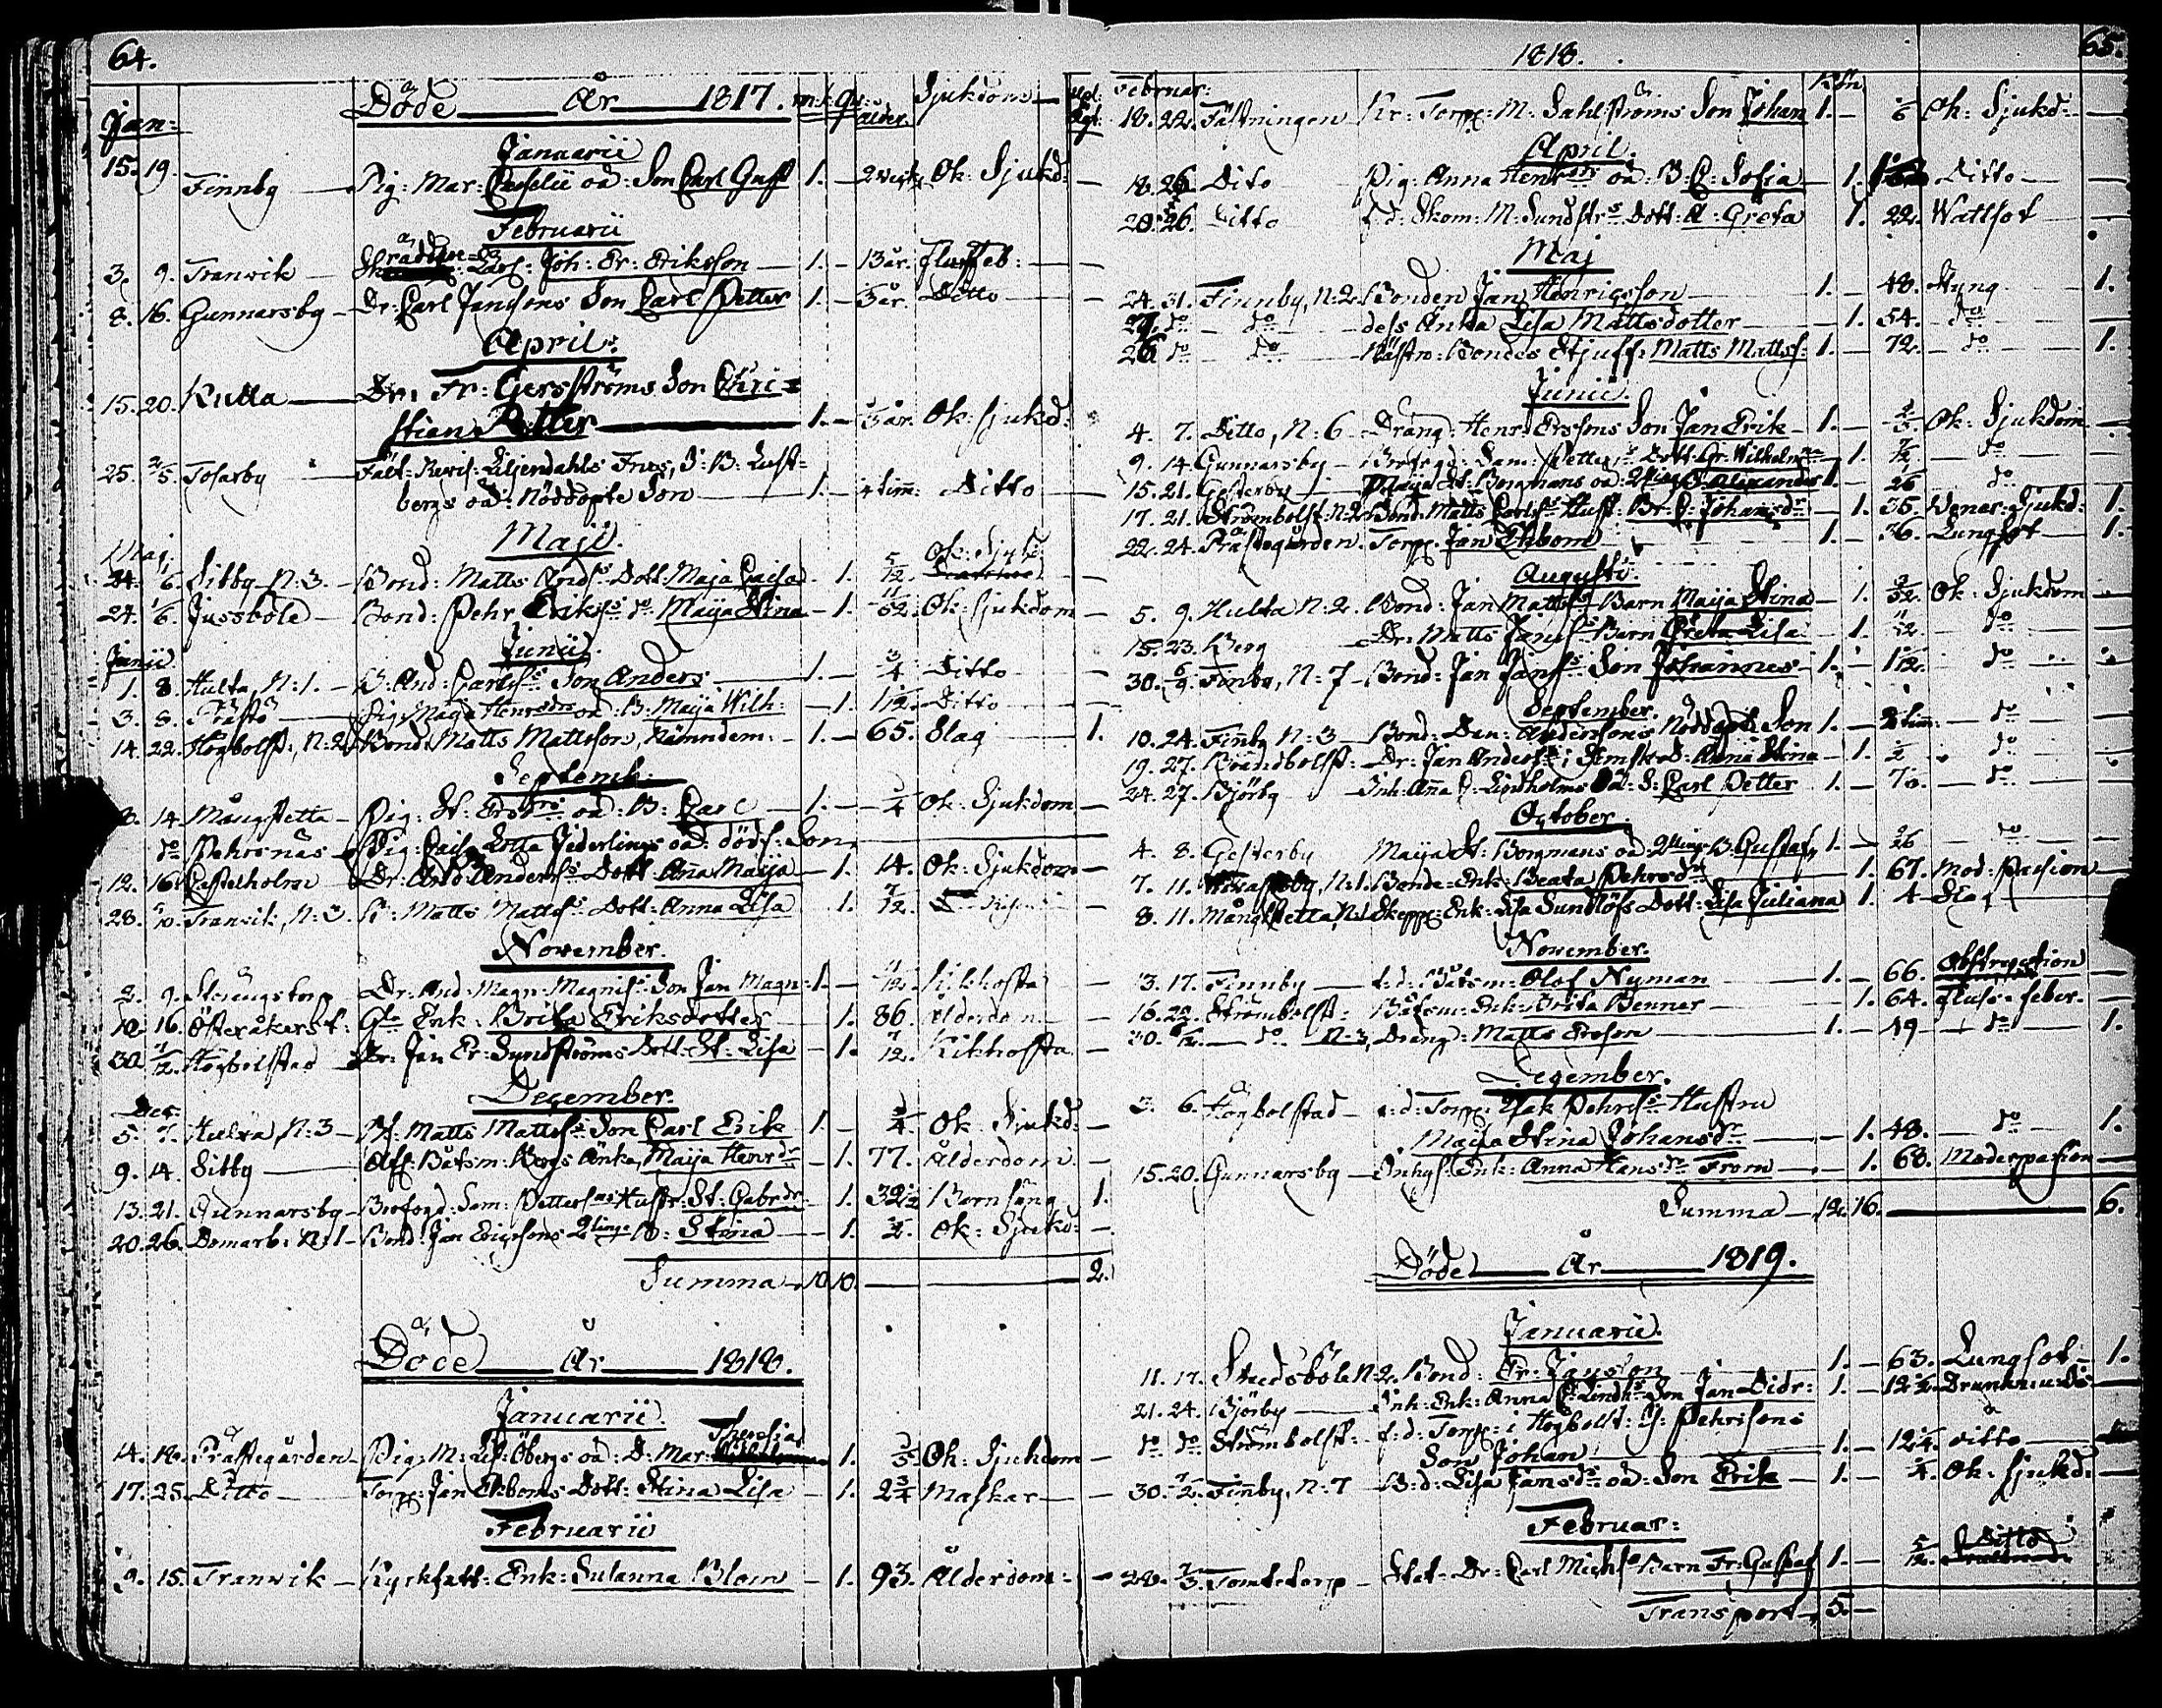 64.
Döde År 1817. m.k. Qv:k ålder. Sjukdom
Jan:
Januarii
15. 19. Finnby Pig: Mar: oä: Son Carl Gust 1. 2 Ok: Sjukd:
Februarii
3. 9. Tranvik Joh: Er: Eriksson 1. 13 år.
8. 16. Gunnarsby Dr: Carl Jansons Son Carl Petter 1. 3 år. Ditto
April:
15. 20. Kulla Dr: Fr: Gersströms Son Chri=
stian Petter 1. år. Ok: sjukd:
25. 2/5. Tosarby Fält: Liljendahls Lust=
bergs oä: Nöddöpte Son 1. 4 tim: Ditto
Maji.
Maj:
24. 1/6. Sibby N:3. Bond: Matts Ands:s Dott: Maja Caisa 1. 5/12. Ok: Sjuk
24. 1/6. Jussböle Bond: Pehr Eriks:s d:o Maija Stina 1. 11/52. Ok: sjukdom
Junii.
Junii
1. 8. Hulta, N:1. B: And: Carls:s Son Anders 1. 3/4 Ditto
3. 8. Prästö Pig: Maja Henrsdrs oä: B: Maija Wilh: 1. 1 1/12. Ditto
14. 22. Högbolst:, N:2 Bond: Matts Mattsson, Nämndem: 1. 65. Slag 1.
Septemb:
8. 14. Mångstetta Pig: St: Ersdrs oä: B: Carl 1. 3/4 Ok: Sjukdom
d:o Pehrsnäs Pig: Caisa Lotta oä: dödf: Son
12. 16. Castelholm Dr: And: Anders:s Dott: Anna Maija 1. 14. Ok: Sjukdom
28. 5/10. Tranvik, N:3. B: Matts Matts:s Dott: Anna Lisa 1. 7/12.
November.
2. 9. Strängstorp Dr: And: Magn: Magnis: Son Jan Magn: 1. 11/12. Kikhosta
10. 16. Öfteråkerst: Enk: Brita Eriksdotter 1. 86. Ålderdom
30. 7/12. Högbolstad Dr: Jan Er: Sundströms Dott: St: Lisa 1. 7/12. Kikhosta
December.
Dec:
5. 7. Hulta, N:3 B: Matts Matts:s Son Carl Erik 1. 3/4 Ok: Sjukd:
9. 14. Sibby Afsk: Båtsm: Bergs änka, Maija Henrsdr 1. 77. Ålderdom.
13. 21. Gunnarsby Brofogd: Sam: Petters:ns Hustr: St: Gabrdr 1. 32 1/2 Barnsäng 1.
20. 26. Domarb: N:1 Bond: Jan Ericsons 2ling B: Stina 1. 1/2. Ok: Sjukd:
Summa 10. 10. 2.
Döde År 1818.
Januarii.
Theresia
14. 18. Prästegården Pig: M: Lis: Öbergs oä: D: Mar: 1. Ok: Sjukdom
17. 25. Ditto Torp: Jan Ekboms Dott: Stina Lisa 1. 2 3/4 Maskar
Februarii
9. 15. Tranvik Kyrkfatt: Enk: Susanna Blom 1. 93. Ålderdom:
1818. 65.
Februar: Kön
18. 22. Fästningen Kr: Torp: M: Dahlströms Son Johan 1. 1/6 Ok: Sjukd:
April.
18. 26. Dito Pig: Anna Henrsdrs oä: B: C: Sofia 1. Ditto
20. 26. Ditto f.d: Skom: M: Sundstr:s Dott: A: Greta 1. 22. Wattsot
Maj
24. 31. Finnby, N:2 Bonden Jan Henricsson 1. 48. Hung 1.
27. d:o d:o dess Änka Lisa Mattsdotter 1. 54. d:o
26 d:o d:o Bondes Stjuff: Matts Matts: 1. 72. d:o 1.
Junii.
4. 7. Ditto, N:6 Dräng: Henr: Ersons Son Jan Erik 1. Ok: Sjukdom
9. 14. Gunnarsby Brofogd: Sam: Petters:s Dott: Gr: Wilhelmina 1. 7/12. d:o
15. 21. Gesterby Maija St: Borgmans oä: 2ling B: Alexander 1. 1/26 d:o
17. 21. Strömbolst: N:2 Bond: Matts Carls:s Hust: Br: C: Johansdr 1. 35. Vener: Sjukd: 1.
22. 24. Prästegården. Torp: Jan Ekbom 1. 36. Lungsot 1.
Augusti.
5. 9. Hulta N:2. Bond: Jan Matts:s Barn Maija Stina 1. Ok: Sjukdom
15. 23. Berg Dr: Matts Jans:s Barn Greta Lisa 1. 11/12. d:o
30. 6/9. Finby, N:7 Bond: Jan Jans:s Son Johannes 1. 1 1/12. d:o
September.
10. 24. Finby N:3 Bond: Dan: Andersons Nöddöpt Son 1. 2 tim: d:o
19. 27. Brändbolst: Dr: Jan Anders:s i D: Anna Stina 1. 1/2 d:o
24. 27. Björby Inh: Anna C: Lindholms oä: S: Carl Petter 1. 7. d:o
October.
4. 8. Gesterby Maija St: Borgmans oä: 2ling B: Gustaf 1. 26 d:o
7. 11. N:1. Bonde-Enk: Beata Pehrsdr 1. 67. Mod: Passion
8. 11. Mångstetta N:1 Skepp: Enk: Lisa Sundlöfs Dott: Lisa Juliana 1. 4 Slag
November.
13. 17. Finnby f.d: Båtsm: Olof Nyman 1. 66. Obstruction
16. 22. Strömbolst: Båtsm: Enk: Brita Benner 1. 64. Fluss-feber.
30. 6/12. d:o N:3, Dräng: Matts Erson 1. 49 d:o 1.
December.
3. 6. Högbolstad f.d: Torp: Isak Pehrs:s Hustru
Maija Stina Johansdr 1. 48. d:o 1.
15. 20. Gunnarsby Inhys: Enk: Anna Hansdr From 1. 68. Moderpassion
Summa 12. 16. 6.
Döde År 1819.
Januarii.
11. 17. Stadsböle N:2. Bond: Er: Janson 1. 63. Lungsot 1.
21. 24. Björby Inh: Enk: Anna C: Lindh:s Son Jan Didr: 1. 12 1/2.
d:o d:o Strömbolst: f.d: Torp: i Högbolst: J: Pehrsons
Son Johan 1. 12 1/4. ditto
30. 7/2. Finby, N:7 B:d: Lisa Jansdr oä: Son Erik 1. 1/4 Ok: sjukd:
Februar:
28. 7/3. Tomtetorp Stat: Dr: Carl Mich:s Barn Fr: Gustaf 1. 5/12. Ditto
Transport 5.